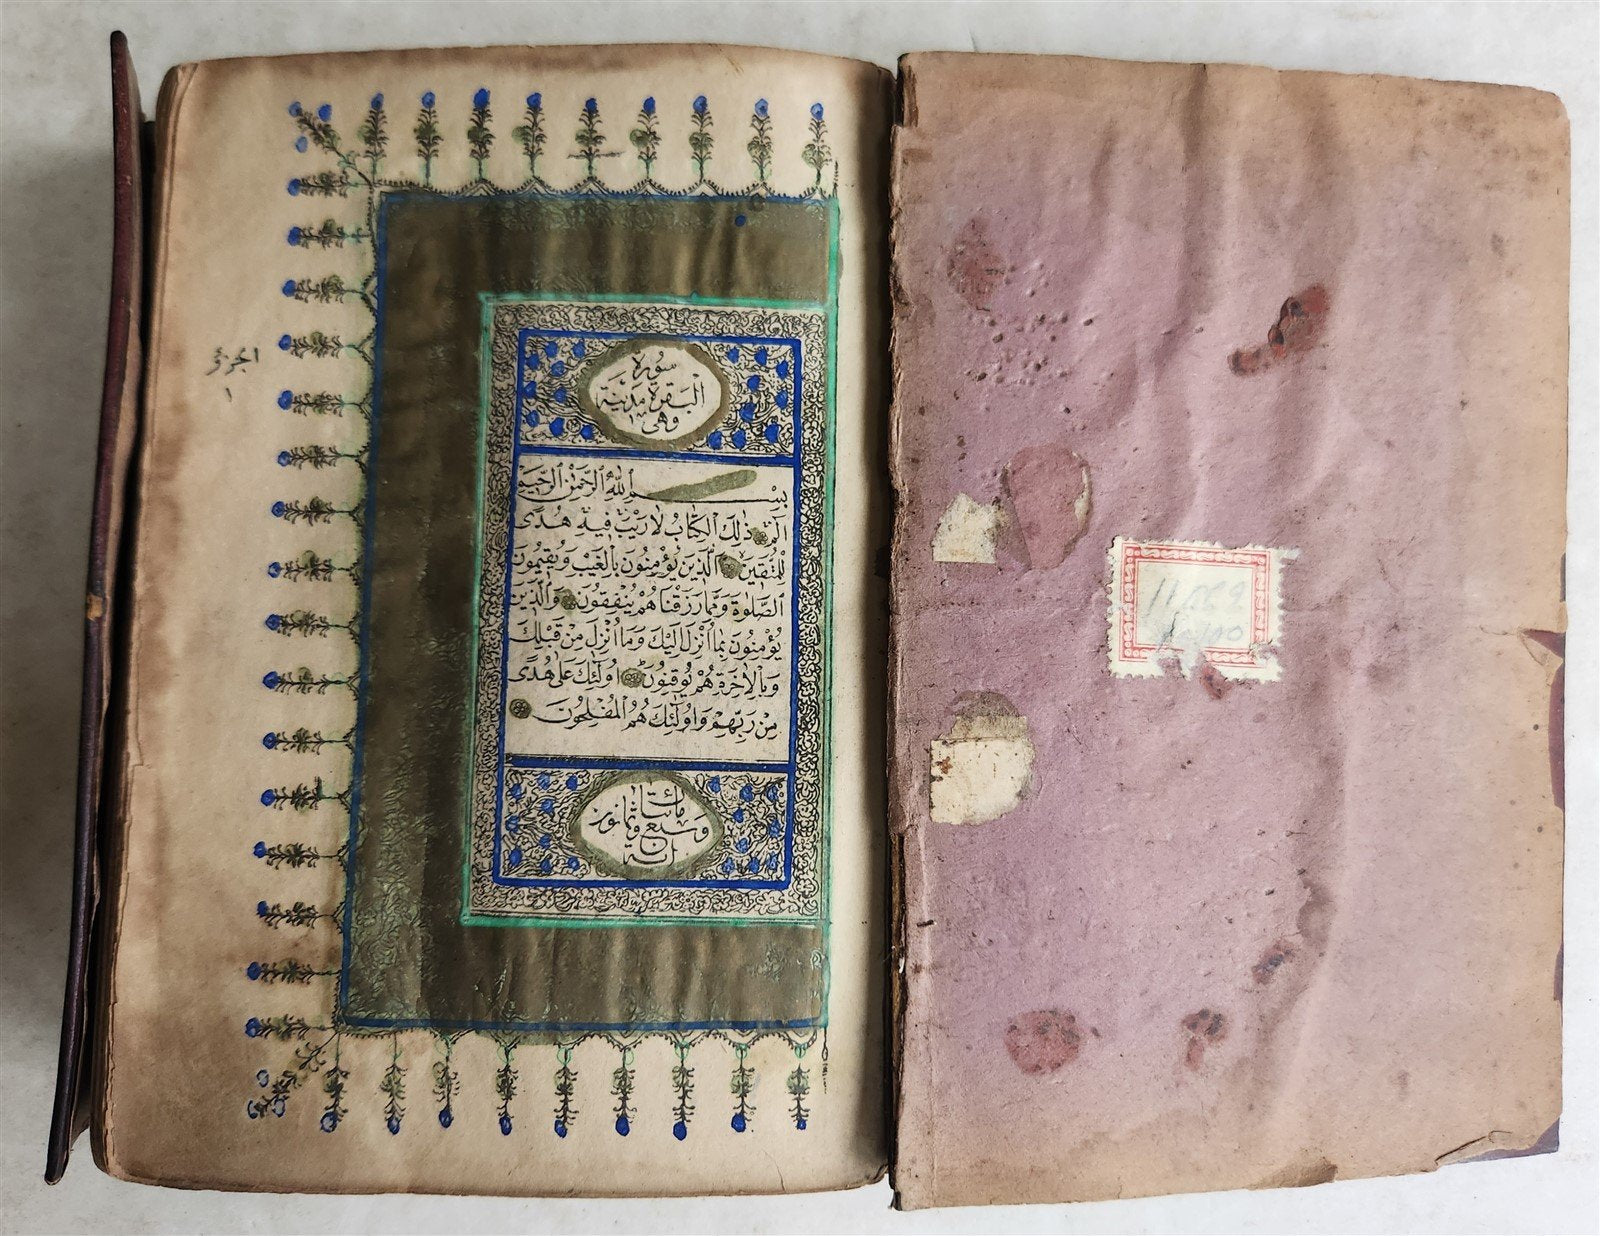 سورة
البقرة مدنية
وهى
بِسْمِ ٱللّٰهِ ٱلرَّحْمٰنِ ٱلرَّحِيمِ
الٓمٓ ذٰلِكَ الْكِتَابُ لَا رَيْبَ فِيهِ هُدًى
لِلْمُتَّقِينَ الَّذِينَ يُؤْمِنُونَ بِالْغَيْبِ وَيُقِيمُونَ
الصَّلٰوةَ وَمِمَّا رَزَقْنَاهُمْ يُنْفِقُونَ وَالَّذِينَ
يُؤْمِنُونَ بِمَا اُنْزِلَ اِلَيْكَ وَمَا اُنْزِلَ مِنْ قَبْلِكَ
وَبِالْاٰخِرَةِ هُمْ يُوقِنُونَ اُولٰئِكَ عَلٰى هُدًى
مِنْ رَبِّهِمْ وَاُولٰئِكَ هُمُ الْمُفْلِحُونَ
مائتا
وسبع وثمانون
اية
الجزؤ
١